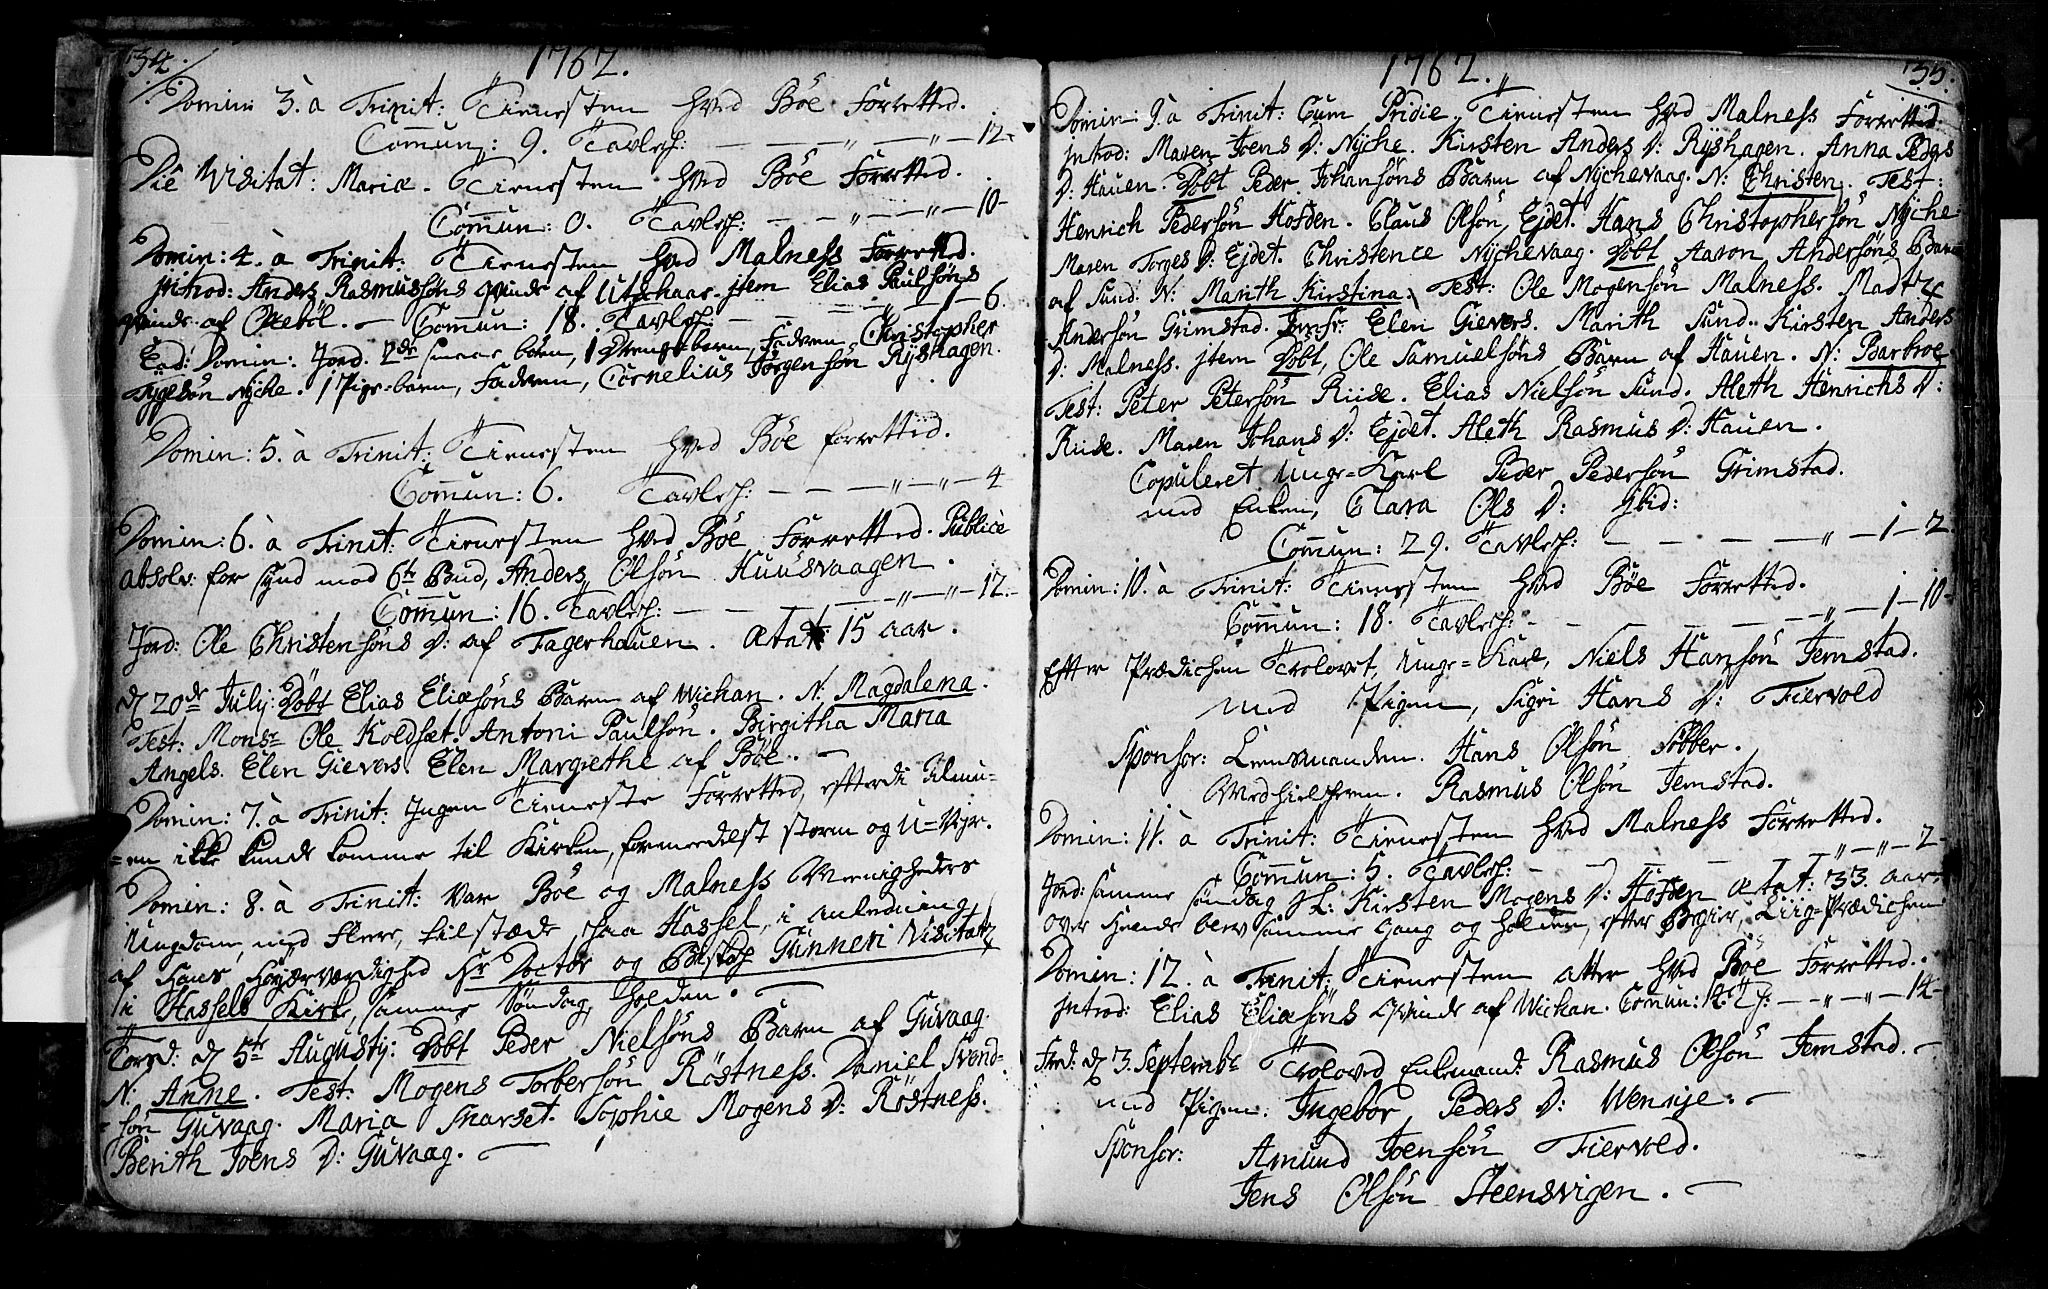 34.
1762.
Domin: 3. à Trinit: Tienesten hved Böe Forrettid.
Comun: 9. Tavlesk: — — — „ — „ — 12.
Die Visitat: Mariæ. Tienesten hved Böe Forrettid.
Comun: 0. Tavlesk: — — „ — „ — 10
Domin: 4. à Trinit: Tienesten hved Malness Forrettid.
Introd: Anders Rasmussöns qvinde af Utschaar. jtem Elias Paulsöns
qvinde af Oxeböl. — Comun: 18. Tavlesk: — — 1 — 6.
Ead: Domin: Jord. 2de smaae börn, 1 Drenge-barn, Faderen Christopher
Tygesön Nÿche. 1 Pige-barn, Faderen, Cornelius Jörgensön Rÿshagen.
Domin: 5. à Trinit: Tienesten hved Böe forrettid.
Comun: 6. Tavlesk: — — — „ — „ — 4
Domin: 6. à Trinit: Tienesten hved Böe Forrettid. Publicè
absolv: for synd mod 6te Bud, Anders Olsön Huusvaagen.
Comun: 16. Tavlesk: — — — „ — „ — 12.
Jord: Ole Christensöns D: af Fagerhauen. Ætat: 15 aar.
d 20de July: Döbt Elias Eliæsöns Barn af Wichan. N: Magdalena.
Test: Monsr Ole Koldsæt. Antoni Paulsön. Birgitha Maria
Angels. Elen Gievers. Elen Margrethe af Böe. —
Domin: 7. à Trinit: Ingen Tieneste Forrettid, efterdi Almu-
=en ikke kunde komme til Kirken, formedelst storm og U=Vejr.
Domin: 8. à Trinit: Var Böe og Malness Meenigheders
Ungdom, med flere, tilstæde, paa Hassel, i anledning
af Hans Højærværdighed Hr Doctor og Biskop Gunneri Visitatz
i Hassels Kirke, samme Söndag, holden. —
Torsd: d 5te Augusty: Döbt Peder Nielsöns Barn af Guvaag.
N: Anne. Test: Mogens Torbersön Röstness. Daniel Svend-
sön Guvaag. Maria Snarset. Sophie Mogens D: Röstness.
Berith Joens D: Guvaag. —
1762.
35.
Domin: 9. à Trinit: Cum Pridie. Tienesten hved Malness Forrettid.
Introd: Maren Joens D: Nÿche. Kirsten Anders D: Rÿshagen. Anna Peders
D: Hauen. Döbt Peder Johansöns Barn af Nÿchevaag. N: Christen. Test:
Henrich Pedersön Hofden. Claus Olsön, Ejdet. Hans Christophersön Nÿche.
Maren Torges D: Ejdet. Christence Nÿchevaag. Döbt Aaron Andersöns Barn
af Sund. N: Marith Kirstina. Test: Ole Mogensön Malness. Madtz
Andersön Grimstad. Jomfr: Elen Gievers. Marith Sund. Kirsten Anders
D: Malness. jtem Döbt, Ole Samuelsöns Barn af Hauen. N: Barbroe
Test: Peter Petersön Riise. Elias Nielsön Sund. Aleth Henrichs D:
Riise. Maren Johans D: Ejdet. Aleth Rasmus D: Hauen.
Copuleret Unge=Karl Peder Pedersön Grimstad.
med Enken, Clara Ols D: Jbid:
Comun: 29. Tavlesk: — — — „ — 1 — 2.
Domin: 10. à Trinit: Tienesten hved Böe Forrettid.
Comun: 18. Tavlesk: — — — „ — 1 — 10
Efter Prædichen Trolovet, Unge=Karl, Niels Hansön Jemstad.
med Pigen, Sigri Hans D: Fiervold
Sponsor: Leensmanden. Hans Olsön Söbber.
Medhielperen. Rasmus Olsön Jemstad.
Domin: 11. à Trinit: Tienesten hved Malness Forrettid.
Comun: 5. Tavlesk: — — — „ — „ — 2
Jord: samme söndag Kirsten Mogens D: Hofden ætat: 33 aar.
over hende blev samme gang og holden, efter Begier, Liig=Prædichen
Domin: 12. à Trinit: Tienesten atter hved Böe Forrettid.
Introd: Elias Eliæsöns Qvinde af Wichan. Comun: 12. Tf: — — „ — „ — 14
Fred: d 3. Septembr: Trolovd Enkemand: Rasmus Olsön Jemstad. —
med Pigen. Ingebor Peders D: Wenrje. —
Sponsor: Amund Joensön Fiervold.
Jens Olsön Steensvigen. —